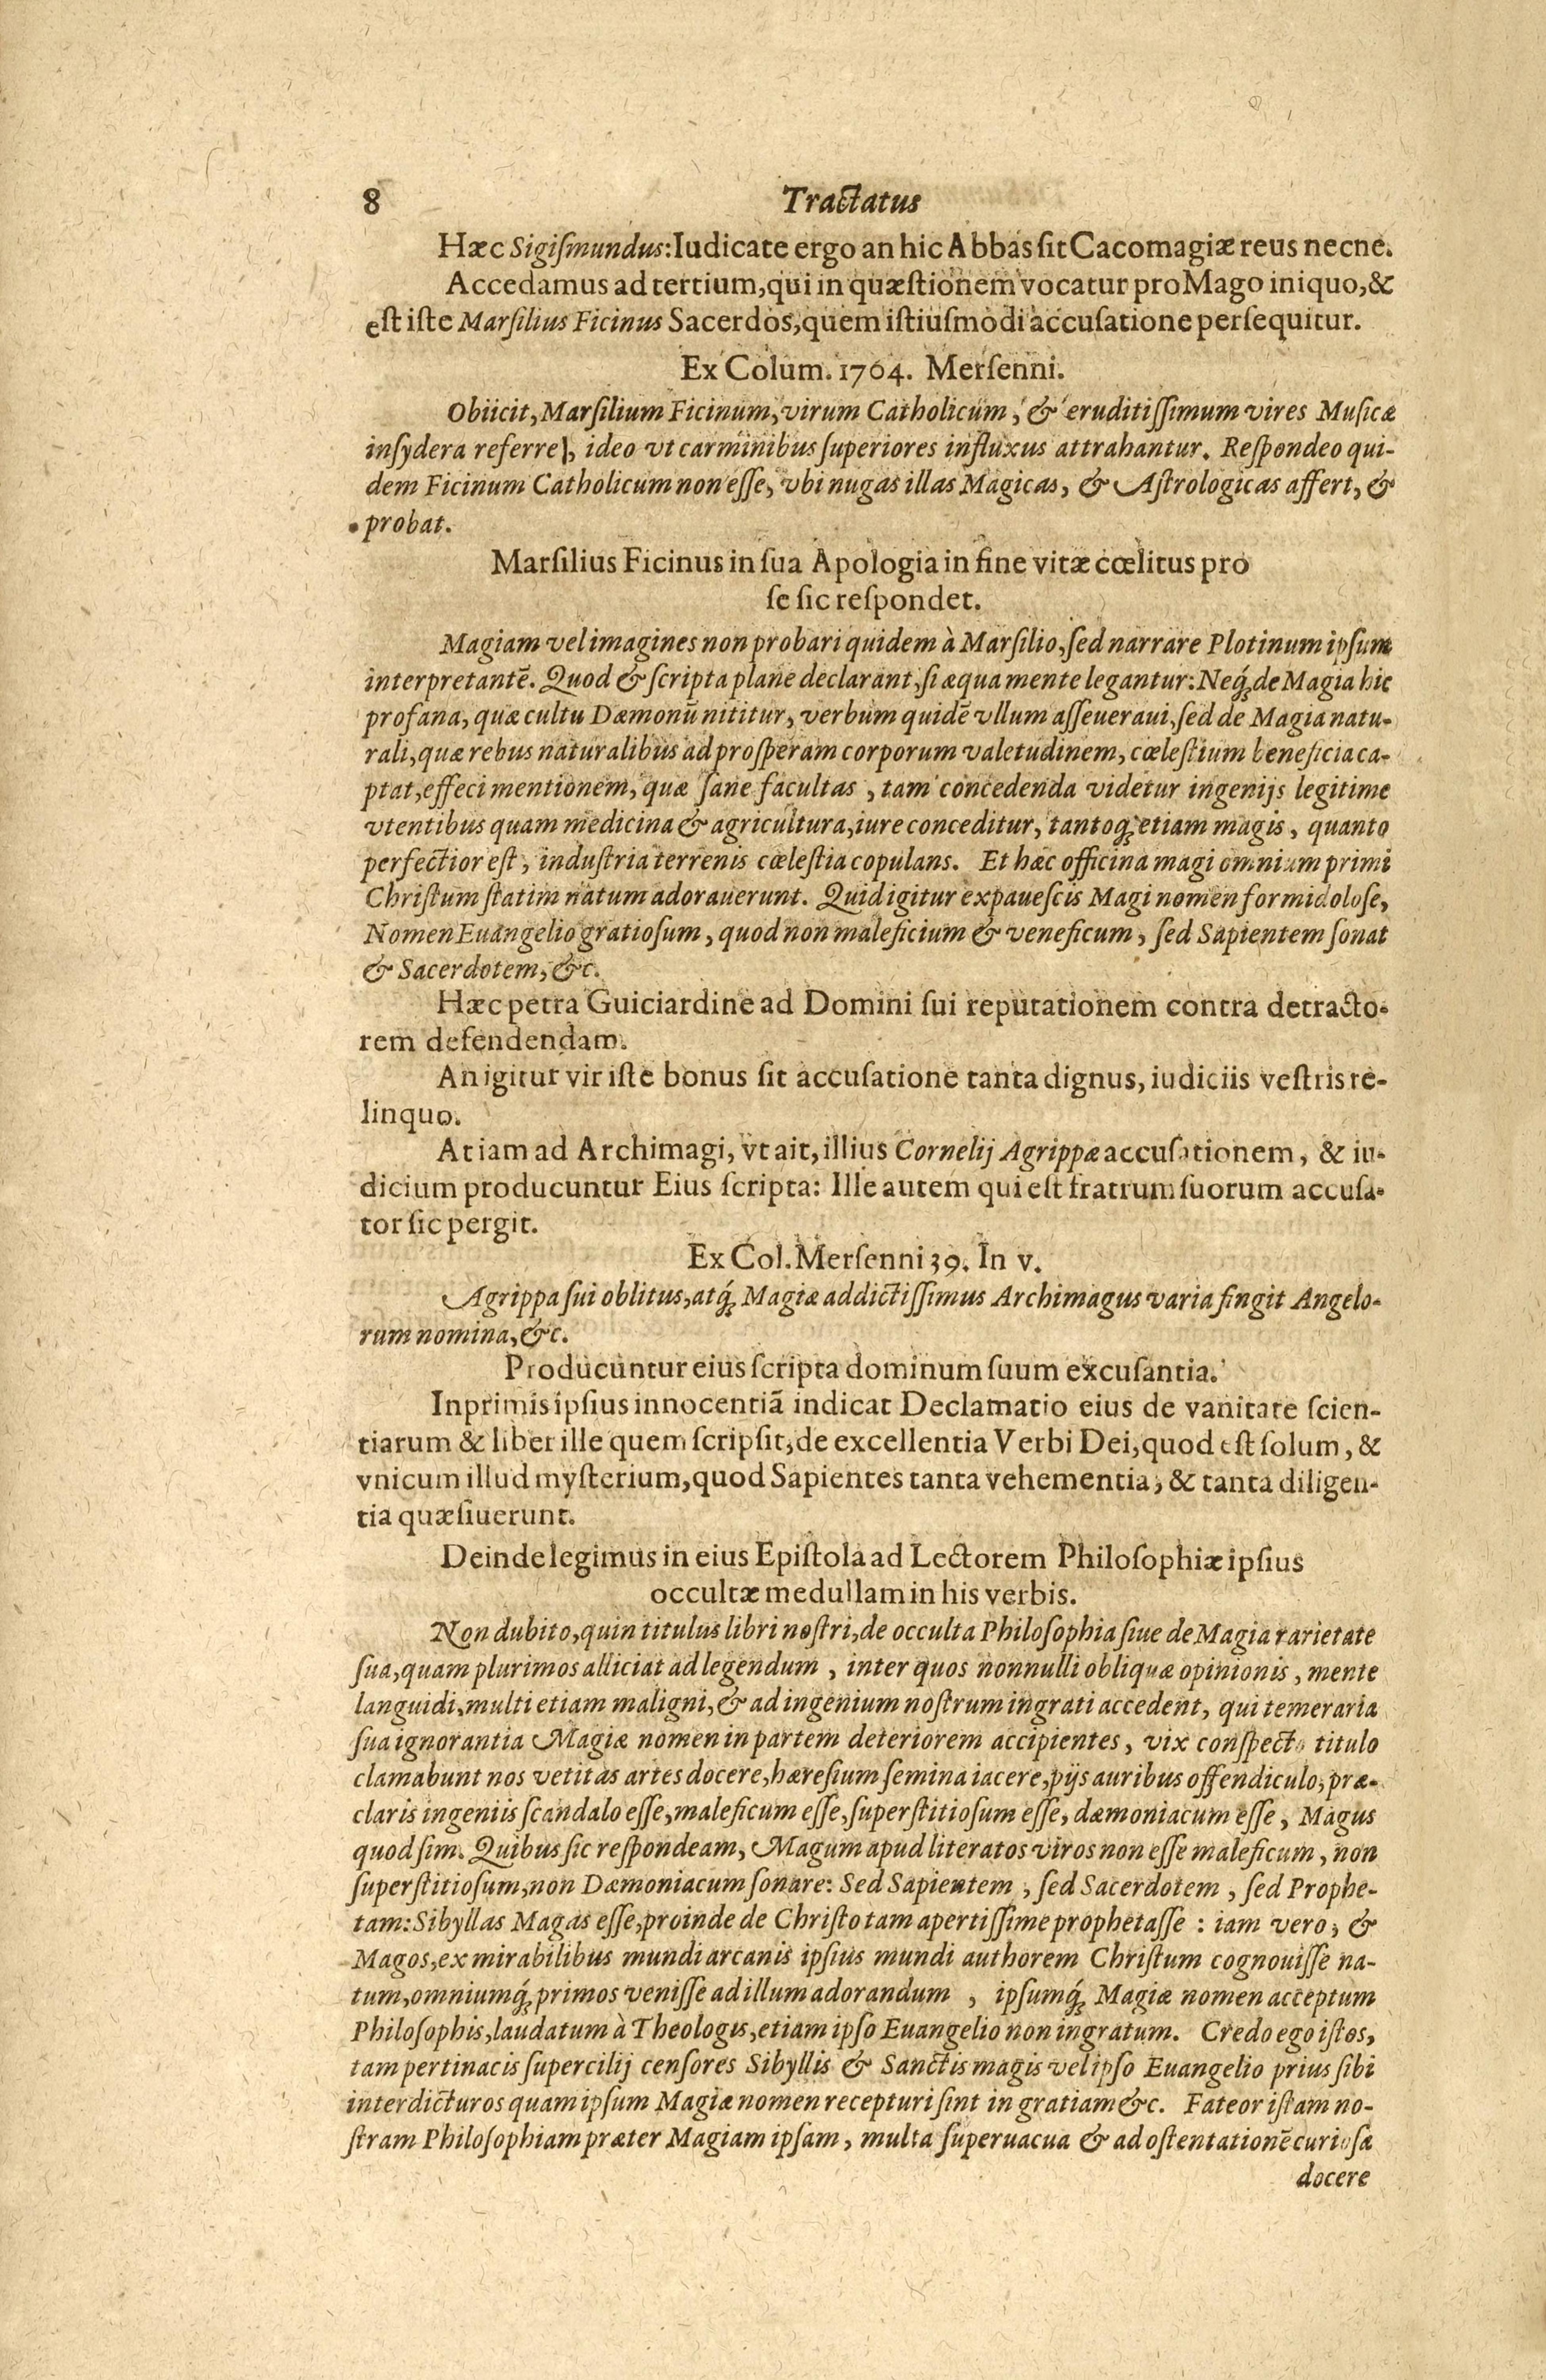 8 Tractatus
Hæc Sigiſmundus: Iudicate ergo an hic Abbas ſit Cacomagiæ reus necne.
Accedamus ad tertium, qui in quæſtionem vocatur pro Mago iniquo, &
eſt iſte Marſilius Ficinus Sacerdos, quem iſtiuſmodi accuſatione perſequitur.
Ex Colum. 1764. Merſenni.
Obiicit, Marſilium Ficinum, virum Catholicum, & eruditiſſimum vires Muſicæ
inſydera referre, ideo vt carminibus ſuperiores influxus attrahantur. Reſpondeo qui-
dem Ficinum Catholicum non eſſe, vbi nugas illas Magicas, & Aſtrologicas affert, &
probat.
Marſilius Ficinus in ſua Apologia in fine vitæ cœlitus pro
ſe ſic reſpondet.
Magiam vel imagines non probari quidem à Marſilio, ſed narrare Plotinum ipſum
interpretantē. Quod & ſcripta plane declarant, ſi æqua mente legantur: Neq́ʒ de Magia hic
profana, quæ cultu Dæmonū nititur, verbum quidē vllum aſſeueraui, ſed de Magia natu-
rali, quæ rebus naturalibus ad proſperam corporum valetudinem, cœleſtium beneficia ca-
ptat, effeci mentionem, quæ ſane facultas, tam concedenda videtur ingenijs legitime
vtentibus quam medicina & agricultura, iure conceditur, tantoq́ʒ etiam magis, quanto
perfectior eſt, induſtria terrenis cœleſtia copulans. Et hæc officina magi omnium primi
Chriſtum ſtatim natum adorauerunt. Quid igitur expaueſcis Magi nomen formidoloſe,
Nomen Euangelio gratioſum, quod non maleficium & veneficum, ſed Sapientem ſonat
& Sacerdotem, &c.
Hæc petra Guiciardine ad Domini ſui reputationem contra detracto-
rem defendendam.
An igitur vir iſte bonus ſit accuſatione tanta dignus, iudiciis veſtris re-
linquo.
At iam ad Archimagi, vt ait, illius Cornelij Agrippæ accuſationem, & iu-
dicium producuntur Eius ſcripta: Ille autem qui eſt fratrum ſuorum accuſa-
tor ſic pergit.
Ex Col. Merſenni 39. In v.
Agrippa ſui oblitus, atq́ʒ Magiæ addictiſſimus Archimagus varia fingit Angelo-
rum nomina, &c.
Producuntur eius ſcripta dominum ſuum excuſantia.
Inprimis ipſius innocentiā indicat Declamatio eius de vanitate ſcien-
tiarum & liber ille quem ſcripſit, de excellentia Verbi Dei, quod eſt ſolum, &
vnicum illud myſterium, quod Sapientes tanta vehementia, & tanta diligen-
tia quæſiuerunt.
Deinde legimus in eius Epiſtola ad Lectorem Philoſophiæ ipſius
occultæ medullam in his verbis.
Non dubito, quin titulus libri noſtri, de occulta Philoſophia ſiue de Magia rarietate
ſua, quam plurimos alliciat ad legendum, inter quos nonnulli obliquæ opinionis, mente
languidi, multi etiam maligni, & ad ingenium noſtrum ingrati accedent, qui temeraria
ſua ignorantia Magiæ nomen in partem deteriorem accipientes, vix conſpecto titulo
clamabunt nos vetitas artes docere, hæreſium ſemina iacere, pijs auribus offendiculo, præ-
claris ingeniis ſcandalo eſſe, maleficum eſſe, ſuperſtitioſum eſſe, dæmoniacum eſſe, Magus
quod ſim. Quibus ſic reſpondeam, Magum apud literatos viros non eſſe maleficum, non
ſuperſtitioſum, non Dæmoniacum ſonare: Sed Sapientem, ſed Sacerdotem, ſed Prophe-
tam: Sibyllas Magas eſſe, proinde de Chriſto tam apertiſſime prophetaſſe: iam vero, &
Magos, ex mirabilibus mundi arcanis ipſius mundi authorem Chriſtum cognouiſſe na-
tum, omniumq́ʒ primos veniſſe ad illum adorandum, ipſumq́ʒ Magiæ nomen acceptum
Philoſophis, laudatum à Theologis, etiam ipſo Euangelio non ingratum. Credo ego iſtos,
tam pertinacis ſupercilij cenſores Sibyllis & Sanctis magis vel ipſo Euangelio prius ſibi
interdicturos quam ipſum Magiæ nomen recepturi ſint in gratiam &c. Fateor iſtam no-
ſtram Philoſophiam præter Magiam ipſam, multa ſuperuacua & ad oſtentationē curioſa
docere